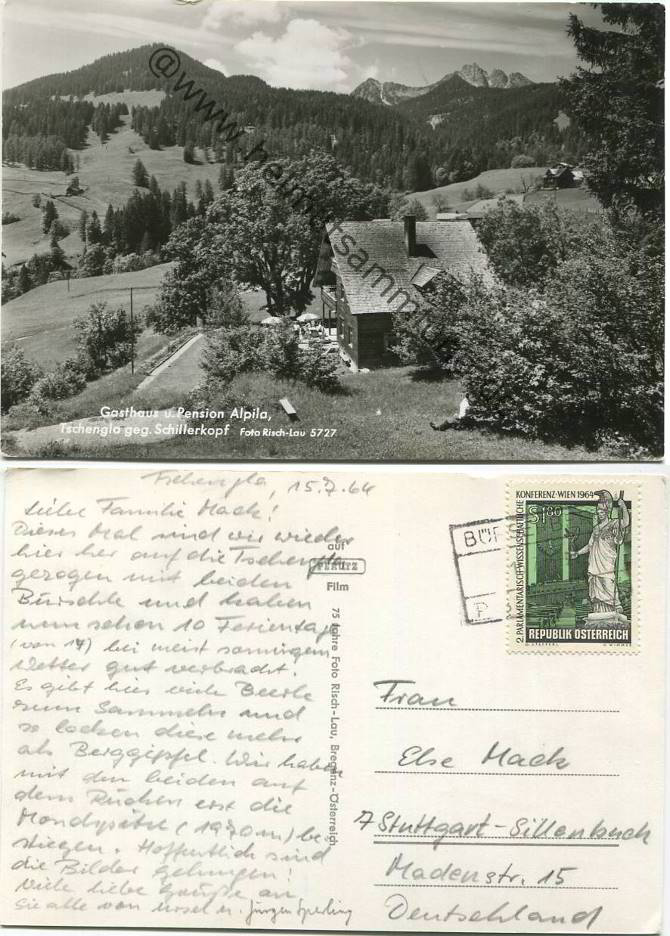 @www.heimatsammlung.de
Gasthaus u. Pension Alpila,
Tschengla geg. Schillerkopf Foto Risch-Lau 5727
Tschengla, 15.7.64
Liebe Familie Mack!
Dieses Mal sind wir wieder
hier her auf die Tschengla
gezogen mit beiden
Bürschle und haben
nun schon 10 Ferientage
(von 14) bei meist sonnigem
Wetter gut verbracht.
Es gibt hier viele Beerle
zum Sammeln und
so locken diese mehr
als Berggipfel. Wir haben
mit den beiden auf
dem Rücken erst die
Mondspitze (1970m) be-
stiegen. Hoffentlich sind
die Bilder gelungen!
Viele liebe Grüße an
Sie alle von Ursel u. Jürgen Sperling
auf
PERUTZ
Film
75 Jahre Foto Risch-Lau, Bregenz-Österreich
BÜR
P
2. PARLAMENTARISCH-WISSENSCHAFTLICHE
KONFERENZ-WIEN 1964
S1.80
REPUBLIK ÖSTERREICH
Frau
Else Mack
7 Stuttgart-Sillenbuch
Madenstr. 15
Deutschland